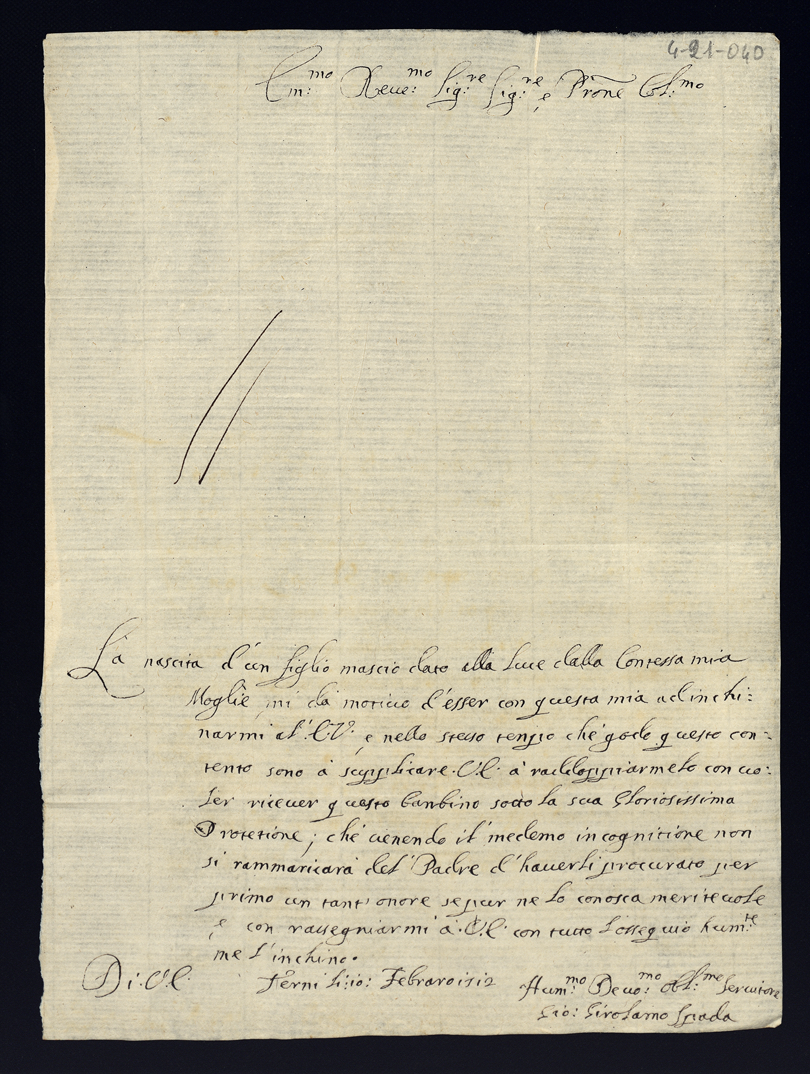 4-21-040
Em:mo Reue:mo Sig:re Sig:re e Prōne Col:mo
La nascita d'un figlio mascio dato alla luce dalla Contessa mia
Moglie mi dà motiuo d'esser con questa mia ad inchi:
narmi al' E.V. e nello stesso tempo che godo questo con-
tento sono à supplicare V.E. à raddoppiarmelo con uo:
ler riceuer questo bambino sotto la sua Gloriosissima
Protetione; che uenendo il' medemo in cognitione non
si rammaricarà del' Padre d'hauerli procurato per
primo un tant' onore se pur ne lo conosca meriteuole
e con rassegniarmi à V.E. con tutto l'ossequio hum:te
me l'inchino.
Di V.E.
Terni li: io: Febraro
Hum:mo Deuo:mo Obl:mo Seruitore
Gio: Girolamo Spada